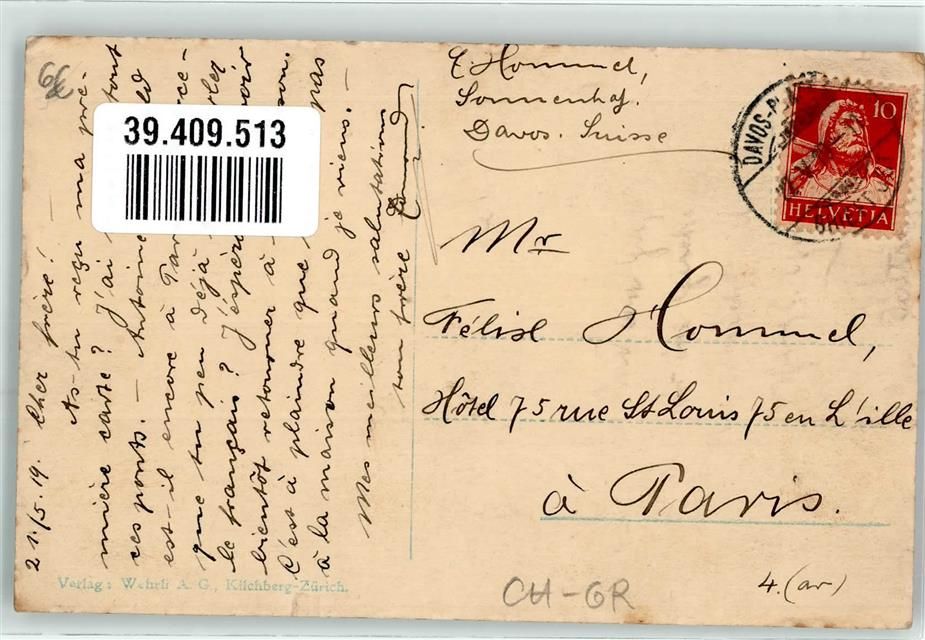 21./5. 19. Cher frère!
As-tu reçu ma pre-
mière carte? J'ai
tont
ces ponts. — Antoine
est-il encore à Par
ce-
que tu pen déjà
parler
le français? J'espère
bientôt retourner à
son.
C'est à plaindre que
pas
à la maison quand je viens. —
Mes meilleurs salutations
ton frère
39.409.513
E. Hommel,
Sonnenhof.
Davos. Suisse
DAVOS-PL
10
HELVETIA
Mr
Félix Hommel,
Hôtel 75 rue St Louis 75 en L'ille
à Paris.
Verlag: Wehrli A. G., Kilchberg-Zürich.
CH-GR
4. (av)